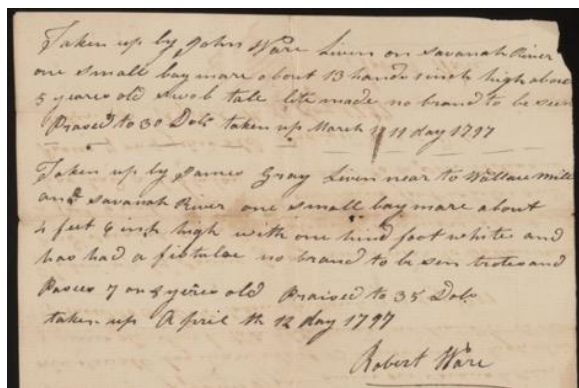 Taken up by John Ware Liven on Savanah River
one small bay mare about 13 hands inch high about
5 yeares old swob tale lite made no brand to be seen
Praised to 30 Dols taken up March 11 day 1797
Taken up by James Gray Liven near to Wallace Mill
and Savanah River one small bay mare about
4 feet 6 inch high with one hind foot white and
has had a fistulae no brand to be sen trotes and
Paces 7 or 8 yeires old Praised to 35 Dols
taken up April th 12 day 1797
Robert Ware